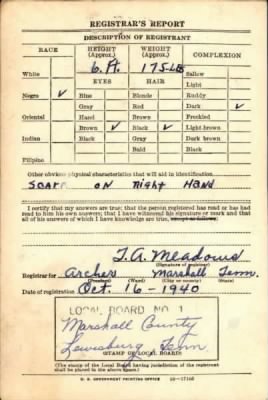 REGISTRAR'S REPORT
DESCRIPTION OF REGISTRANT
RACE HEIGHT (Approx.) WEIGHT (Approx.) COMPLEXION
6 Ft. 175 Lb
White EYES HAIR Sallow
Light
Negro ✓ Blue Blonde Ruddy
Gray Red Dark ✓
Oriental Hazel Brown Freckled
Brown ✓ Black ✓ Light brown
Indian Black Gray Dark brown
Bald Black
Filipino
Other obvious physical characteristics that will aid in identification
Scarr on Right Hand
I certify that my answers are true; that the person registered has read or has had
read to him his own answers; that I have witnessed his signature or mark and that
all of his answers of which I have knowledge are true, except as follows:
T. A. Meadows
(Signature of registrar)
Registrar for Archer Marshall Tenn.
(Precinct) (Ward) (City or county) (State)
Date of registration Oct. 16 - 1940
LOCAL BOARD NO. 1
Marshall County
Lewisburg Tenn
(STAMP OF LOCAL BOARD)
(The stamp of the Local Board having jurisdiction of the registrant shall be
placed in the above space.)
U. S. GOVERNMENT PRINTING OFFICE